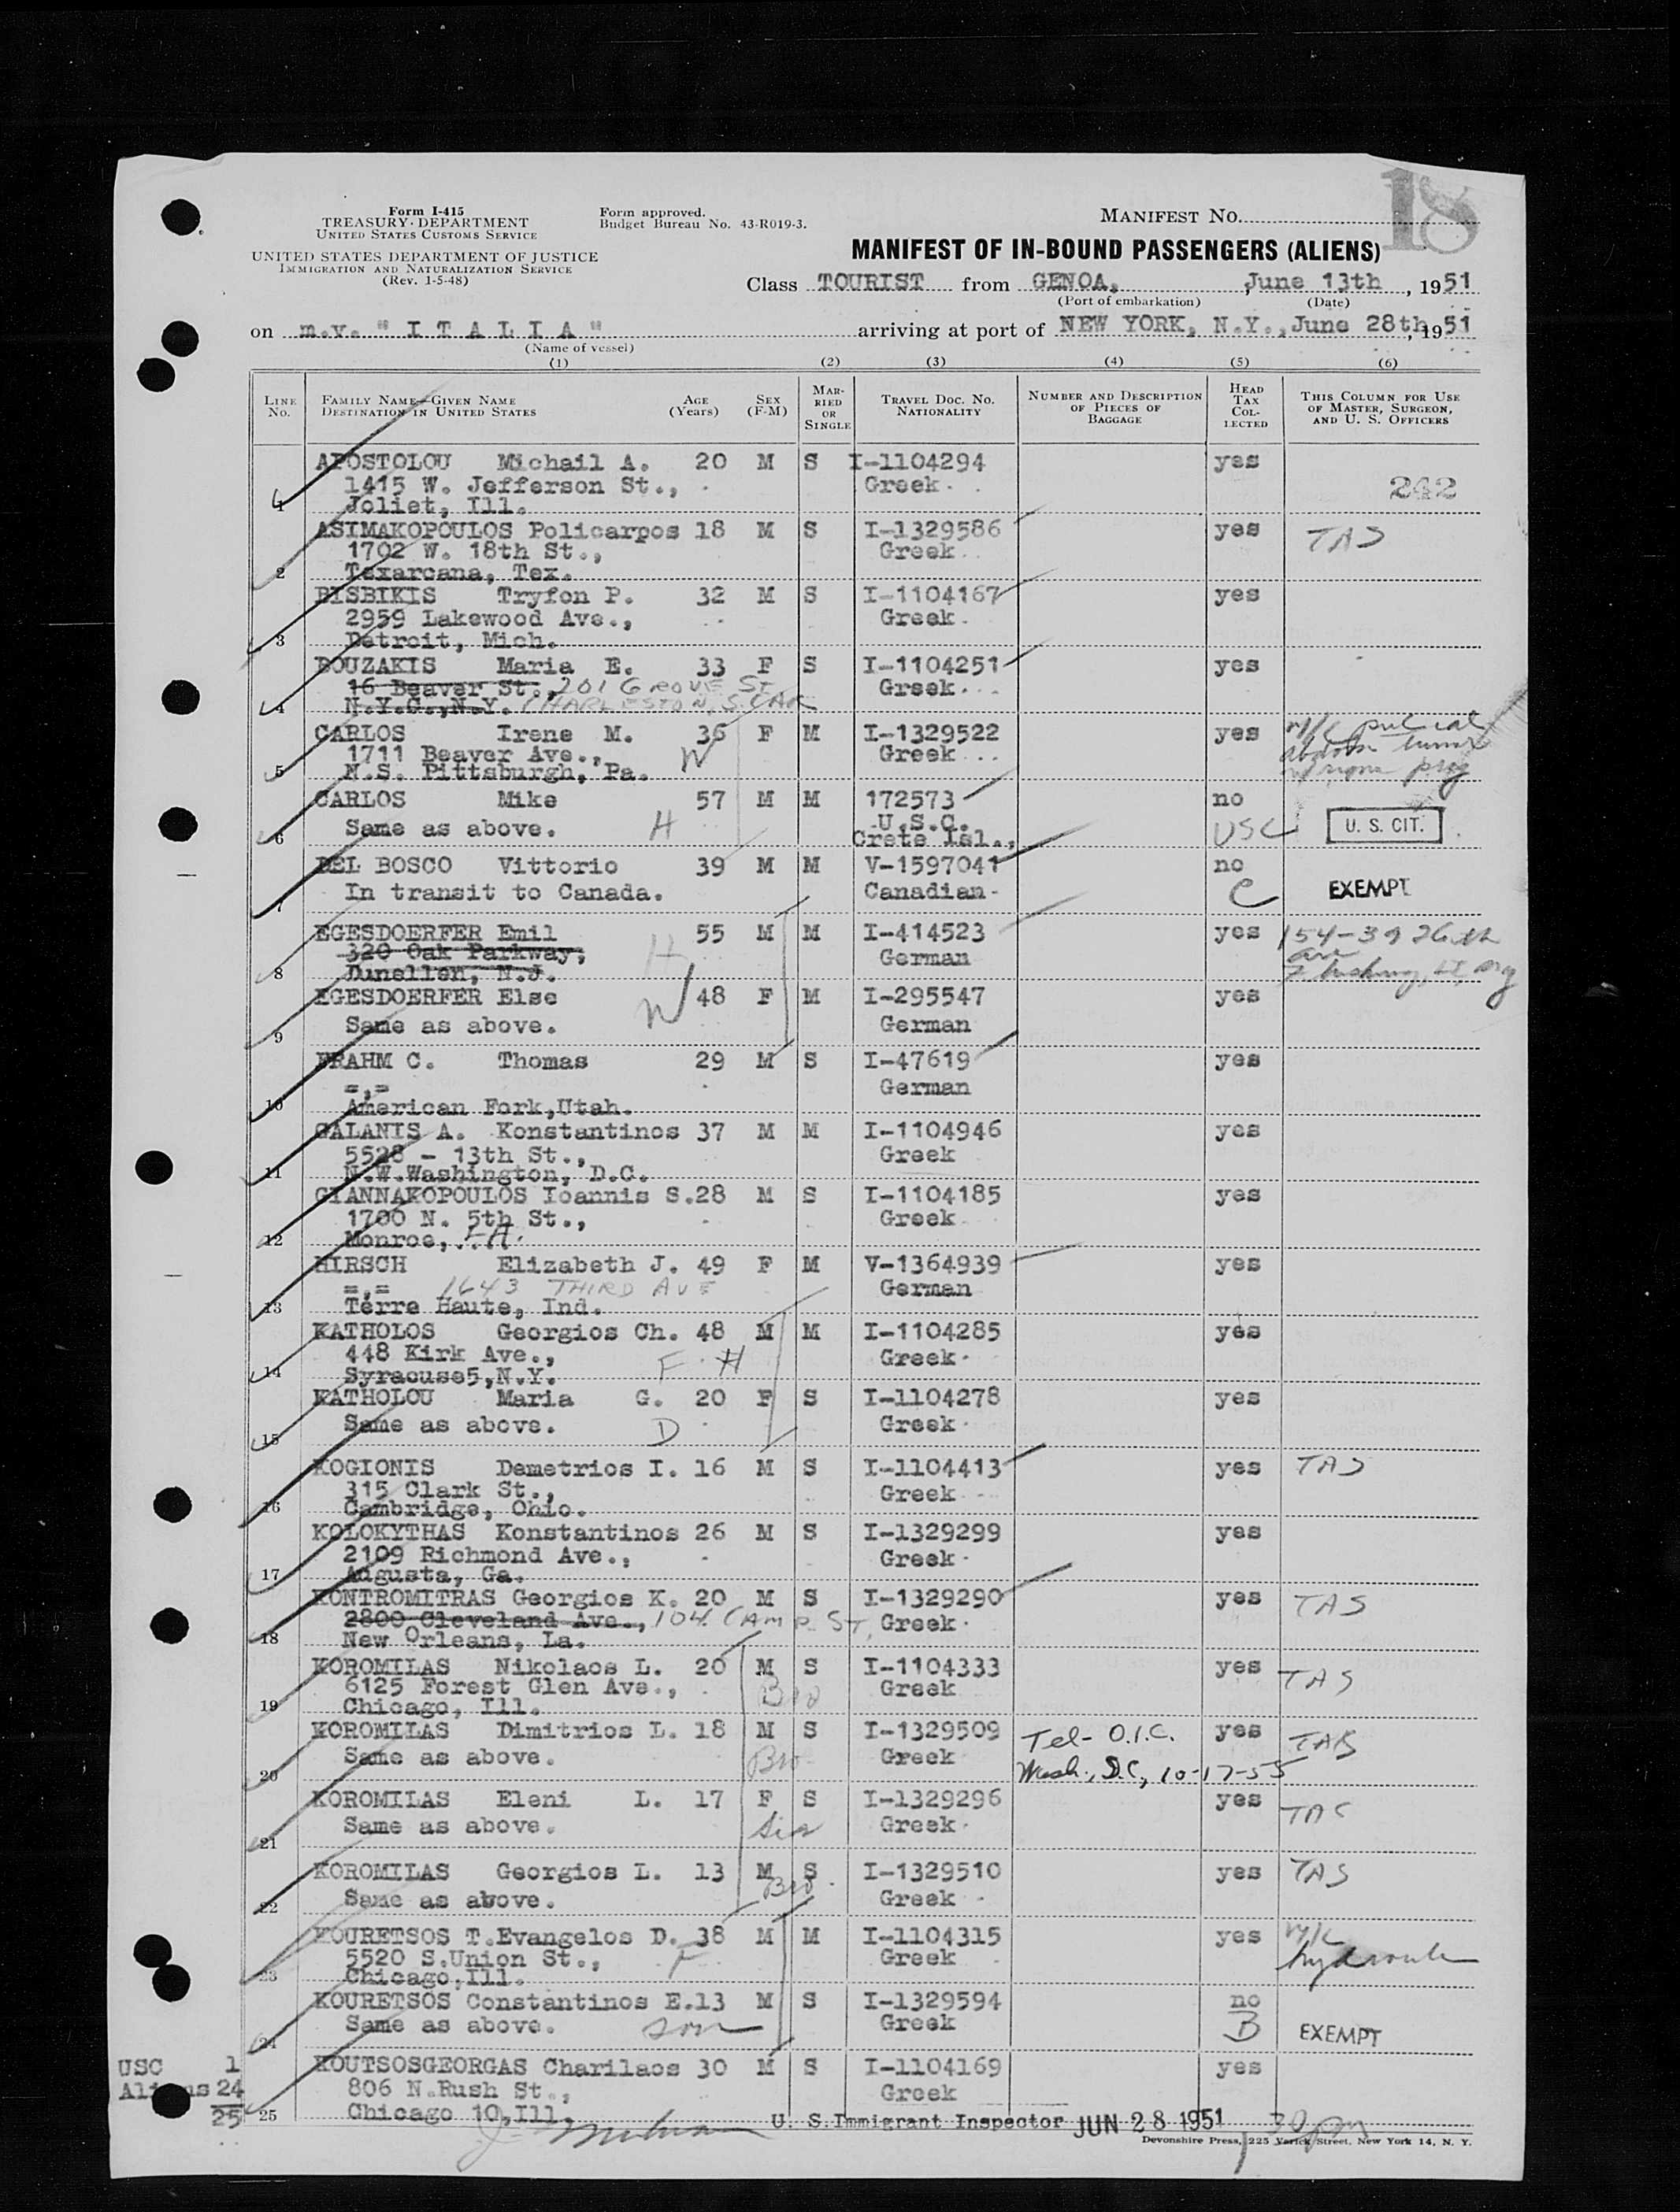 18
Form I-415
TREASURY DEPARTMENT
UNITED STATES CUSTOMS SERVICE
Form approved.
Budget Bureau No. 43-R019-3.
MANIFEST NO.
UNITED STATES DEPARTMENT OF JUSTICE
IMMIGRATION AND NATURALIZATION SERVICE
(Rev. 1-5-48)
MANIFEST OF IN-BOUND PASSENGERS (ALIENS)
Class TOURIST from GENOA, June 13th, 1951
(Port of embarkation) (Date)
on m.v. "ITALIA" arriving at port of NEW YORK, N.Y., June 28th, 1951
(Name of vessel)
(1) (2) (3) (4) (5) (6)
LINE No. FAMILY NAME—GIVEN NAME DESTINATION IN UNITED STATES AGE (Years) SEX (F-M) MARRIED OR SINGLE TRAVEL DOC. NO. NATIONALITY NUMBER AND DESCRIPTION OF PIECES OF BAGGAGE HEAD TAX COLLECTED THIS COLUMN FOR USE OF MASTER, SURGEON, AND U. S. OFFICERS
APOSTOLOU Michail A. 20 M S I-1104294 yes
1415 W. Jefferson St., Greek 242
1 Joliet, Ill.
ASIMAKOPOULOS Policarpos 18 M S I-1329586 yes TAS
1702 W. 18th St., Greek
2 Texarcana, Tex.
BISBIKIS Tryfon P. 32 M S I-1104167 yes
2959 Lakewood Ave., Greek
3 Detroit, Mich.
BOUZAKIS Maria E. 33 F S I-1104251 yes
16 Beaver St., 201 GROVE ST Greek
4 N.Y.C.,N.Y. CHARLESTON, S. CAR
CARLOS Irene M. 36 F M I-1329522 yes
1711 Beaver Ave., W Greek
5 N.S. Pittsburgh, Pa.
CARLOS Mike 57 M M 172573 no
6 Same as above. H U.S.C. USC U. S. CIT.
Crete Isl.,
DEL BOSCO Vittorio 39 M M V-1597041 no
7 In transit to Canada. Canadian C EXEMPT
EGESDOERFER Emil 55 M M I-414523 yes 154-39 26th
320 Oak Parkway, H German Ave
8 Dunellen, N.J. Flushing, LI, NY
EGESDOERFER Else 48 F M I-295547 yes
9 Same as above. W German
FRAHM C. Thomas 29 M S I-47619 yes
=,= German
10 American Fork,Utah.
GALANIS A. Konstantinos 37 M M I-1104946 yes
5528 - 13th St., Greek
11 N.W.Washington, D.C.
GIANNAKOPOULOS Ioannis S. 28 M S I-1104185 yes
1700 N. 5th St., Greek
12 Monroe, LA.
HIRSCH Elizabeth J. 49 F M V-1364939 yes
=,= 1643 THIRD AVE German
13 Terre Haute, Ind.
KATHOLOS Georgios Ch. 48 M M I-1104285 yes
448 Kirk Ave., F. H Greek
14 Syracuse5,N.Y.
KATHOLOU Maria G. 20 F S I-1104278 yes
15 Same as above. D Greek
KOGIONIS Demetrios I. 16 M S I-1104413 yes TAS
315 Clark St., Greek
16 Cambridge, Ohio.
KOLOKYTHAS Konstantinos 26 M S I-1329299 yes
2109 Richmond Ave., Greek
17 Augusta, Ga.
KONTROMITRAS Georgios K. 20 M S I-1329290 yes TAS
2800 Cleveland Ave., 104 CAMP ST, Greek
18 New Orleans, La.
KOROMILAS Nikolaos L. 20 M S I-1104333 yes TAS
6125 Forest Glen Ave., Bro Greek
19 Chicago, Ill.
KOROMILAS Dimitrios L. 18 M S I-1329509 Tel- O.I.C. yes TAS
20 Same as above. Bro Greek Wash., D.C, 10-17-55
KOROMILAS Eleni L. 17 F S I-1329296 yes TAS
21 Same as above. Sis Greek
KOROMILAS Georgios L. 13 M S I-1329510 yes TAS
22 Same as above. Bro Greek
KOURETSOS T.Evangelos D. 38 M M I-1104315 yes
5520 S.Union St., F Greek
23 Chicago,Ill.
KOURETSOS Constantinos E. 13 M S I-1329594 no
24 Same as above. son Greek B EXEMPT
USC 1 KOUTSOSGEORGAS Charilaos 30 M S I-1104169 yes
Aliens 24 806 N.Rush St., Greek
25 25 Chicago 10,Ill,
U. S.Immigrant Inspector JUN 28 1951
Devonshire Press, 225 Varick Street, New York 14, N. Y.